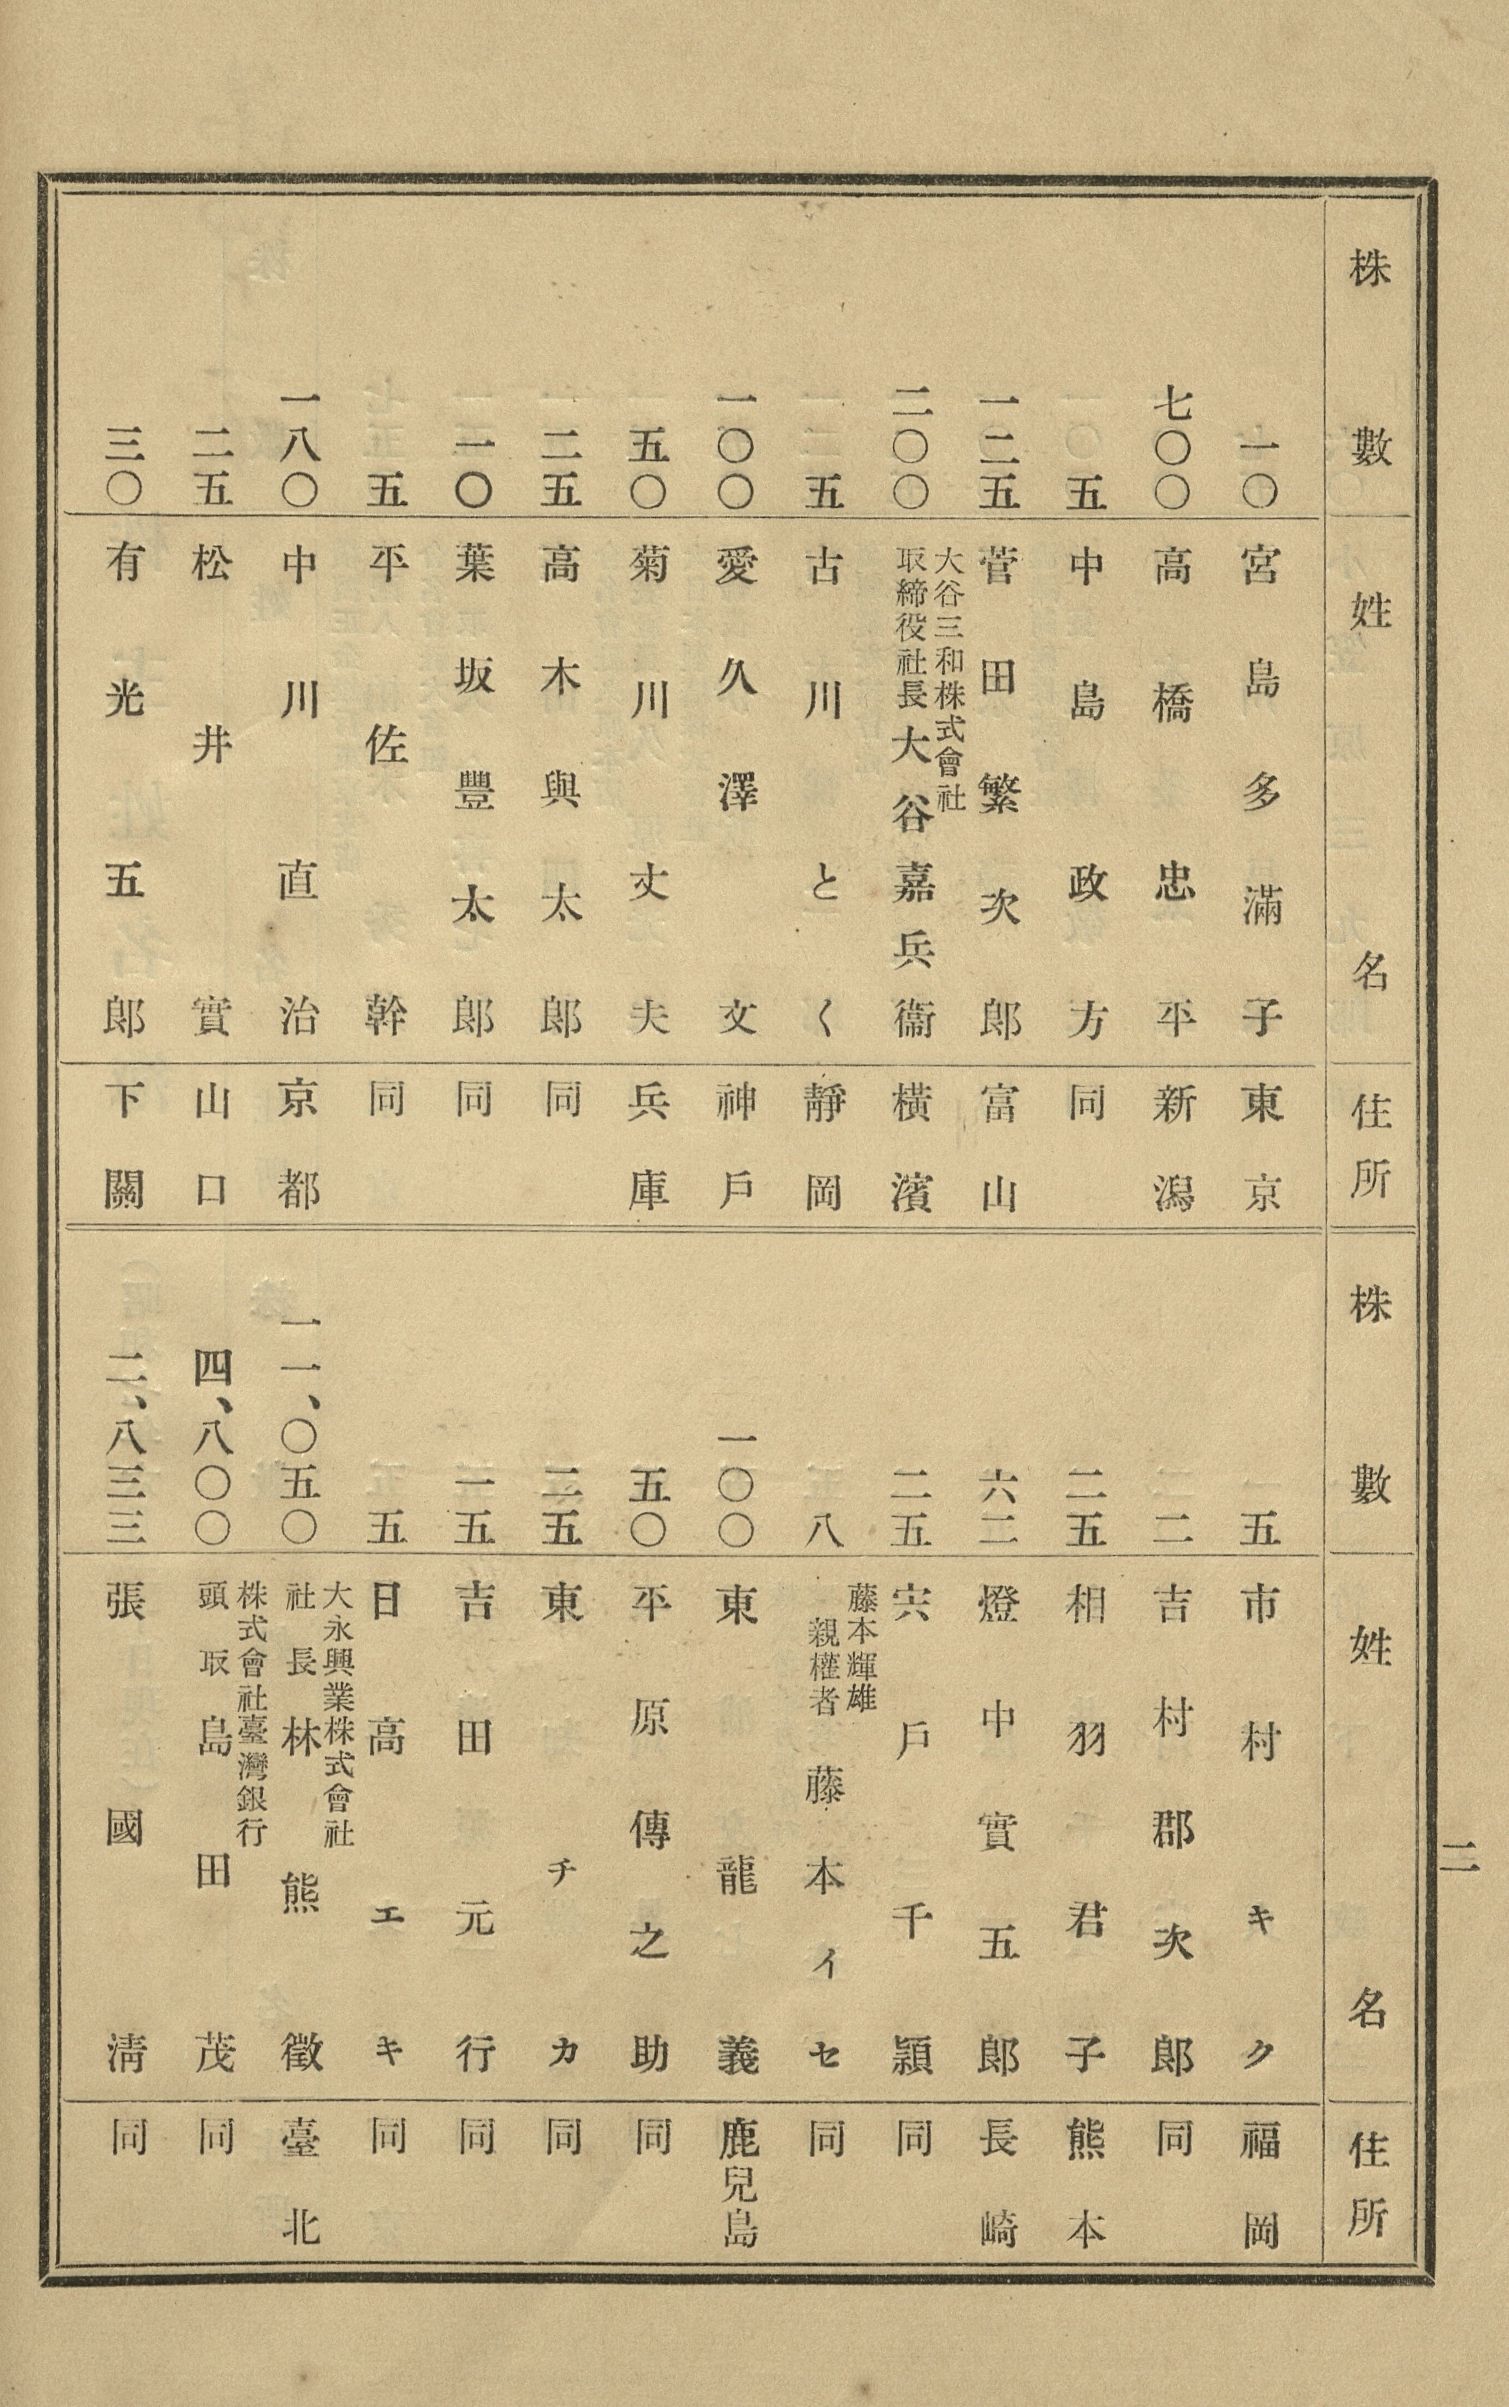 株數 姓名 住所
一〇 宮島多滿子 東京
七〇〇 高橋忠平 新潟
五 中島政方 同
一二五 菅田繁次郎 富山
二〇〇 大谷三和株式會社取締役社長大谷嘉兵衞 橫濱
五 古川とく 靜岡
一〇〇 愛久澤文 神戶
五〇 菊川丈夫 兵庫
二五 高木與太郎 同
一〇 葉坂豐太郎 同
五 平佐幹 同
一八〇 中川直治 京都
二五 松井實 山口
三〇 有光五郎 下關
株數 姓名 住所
五 市村キク 福岡
二 吉村郡次郎 同
二五 相羽君子 熊本
六二 燈中實五郎 長崎
二五 宍戶千頴 同
八 藤本輝雄親權者藤本イセ 同
一〇〇 東龍義 鹿兒島
五〇 平原傳之助 同
二五 東チカ 同
一五 吉田元行 同
五 日高エキ 同
一一、〇五〇 大永興業株式會社社長林熊徵 臺北
四、八〇〇 株式會社臺灣銀行頭取島田茂 同
二、八三三 張國淸 同
二